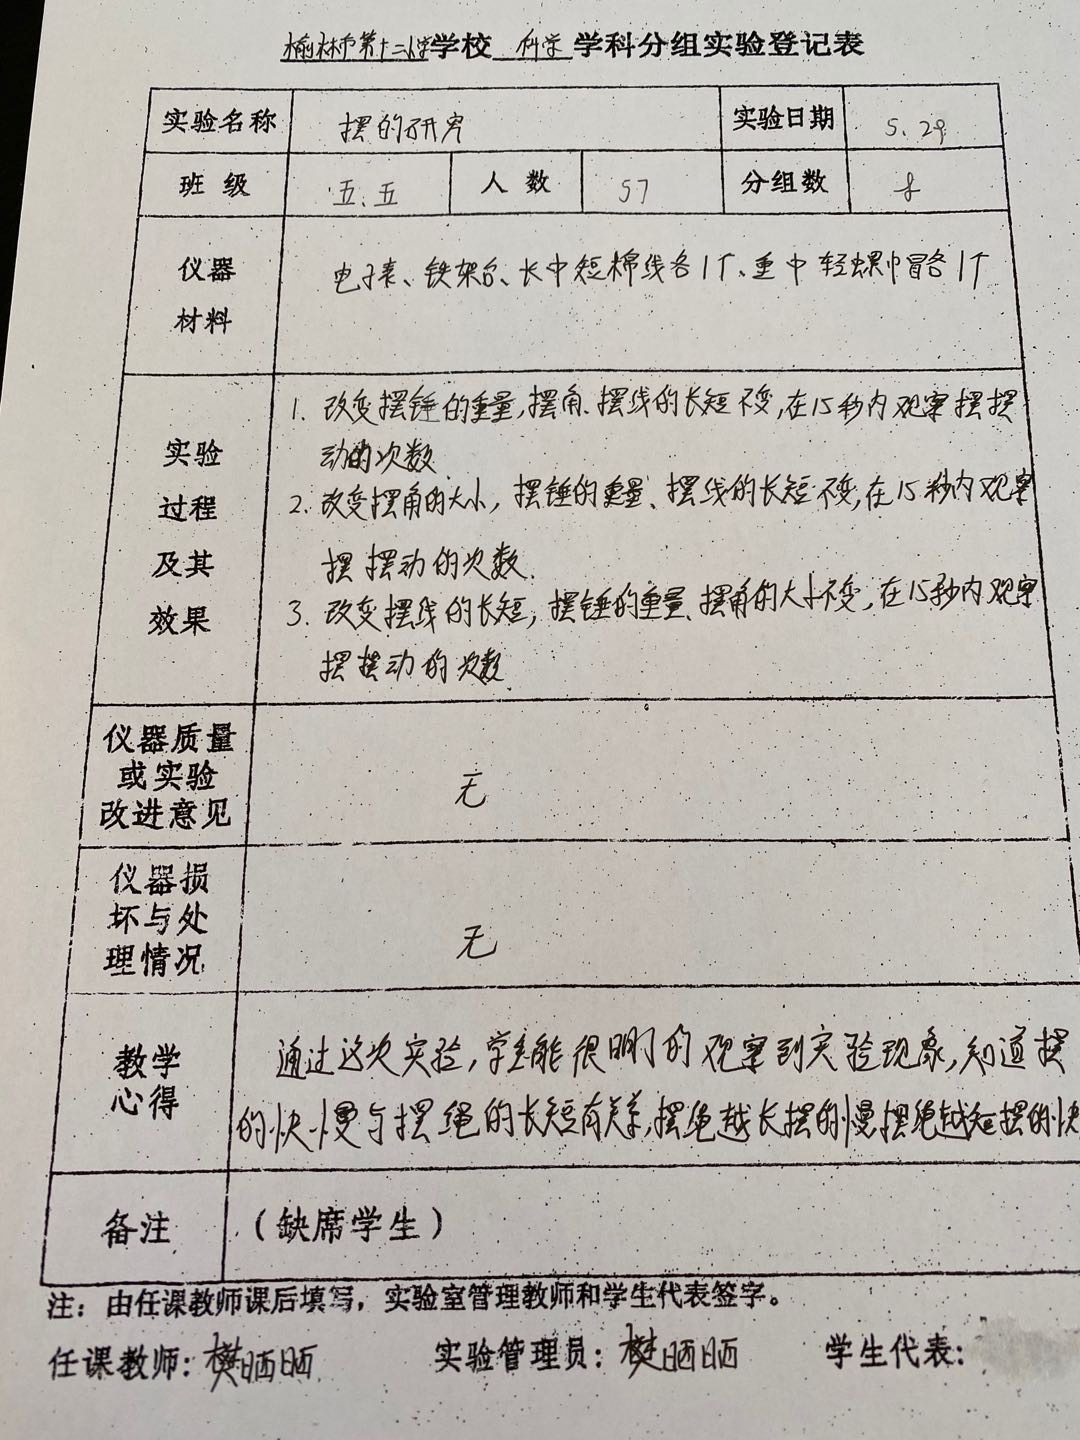 榆林市第十二小学学校 科学 学科分组实验登记表
实验名称 摆的研究 实验日期 5.29
班级 五.五 人数 57 分组数 8
仪器
材料
电子表、铁架台、长中短棉线各1个、重中轻螺巾冒各1个
实验
过程
及其
效果
1. 改变摆锤的重量,摆角、摆线的长短不变,在15秒内观察摆摆
动的次数
2. 改变摆角的大小,摆锤的重量、摆线的长短不变,在15秒内观察
摆摆动的次数.
3. 改变摆线的长短,摆锤的重量、摆角的大小不变,在15秒内观察
摆摆动的次数
仪器质量
或实验
改进意见
无
仪器损
坏与处
理情况
无
教学
心得
通过这次实验,学生能很明门的观察到实验现象,知道摆
的快慢与摆绳的长短有关系,摆绳越长摆的慢摆绳越短摆的快
备注 (缺席学生)
注：由任课教师课后填写，实验室管理教师和学生代表签字。
任课教师：樊晒晒 实验管理员：樊晒晒 学生代表：